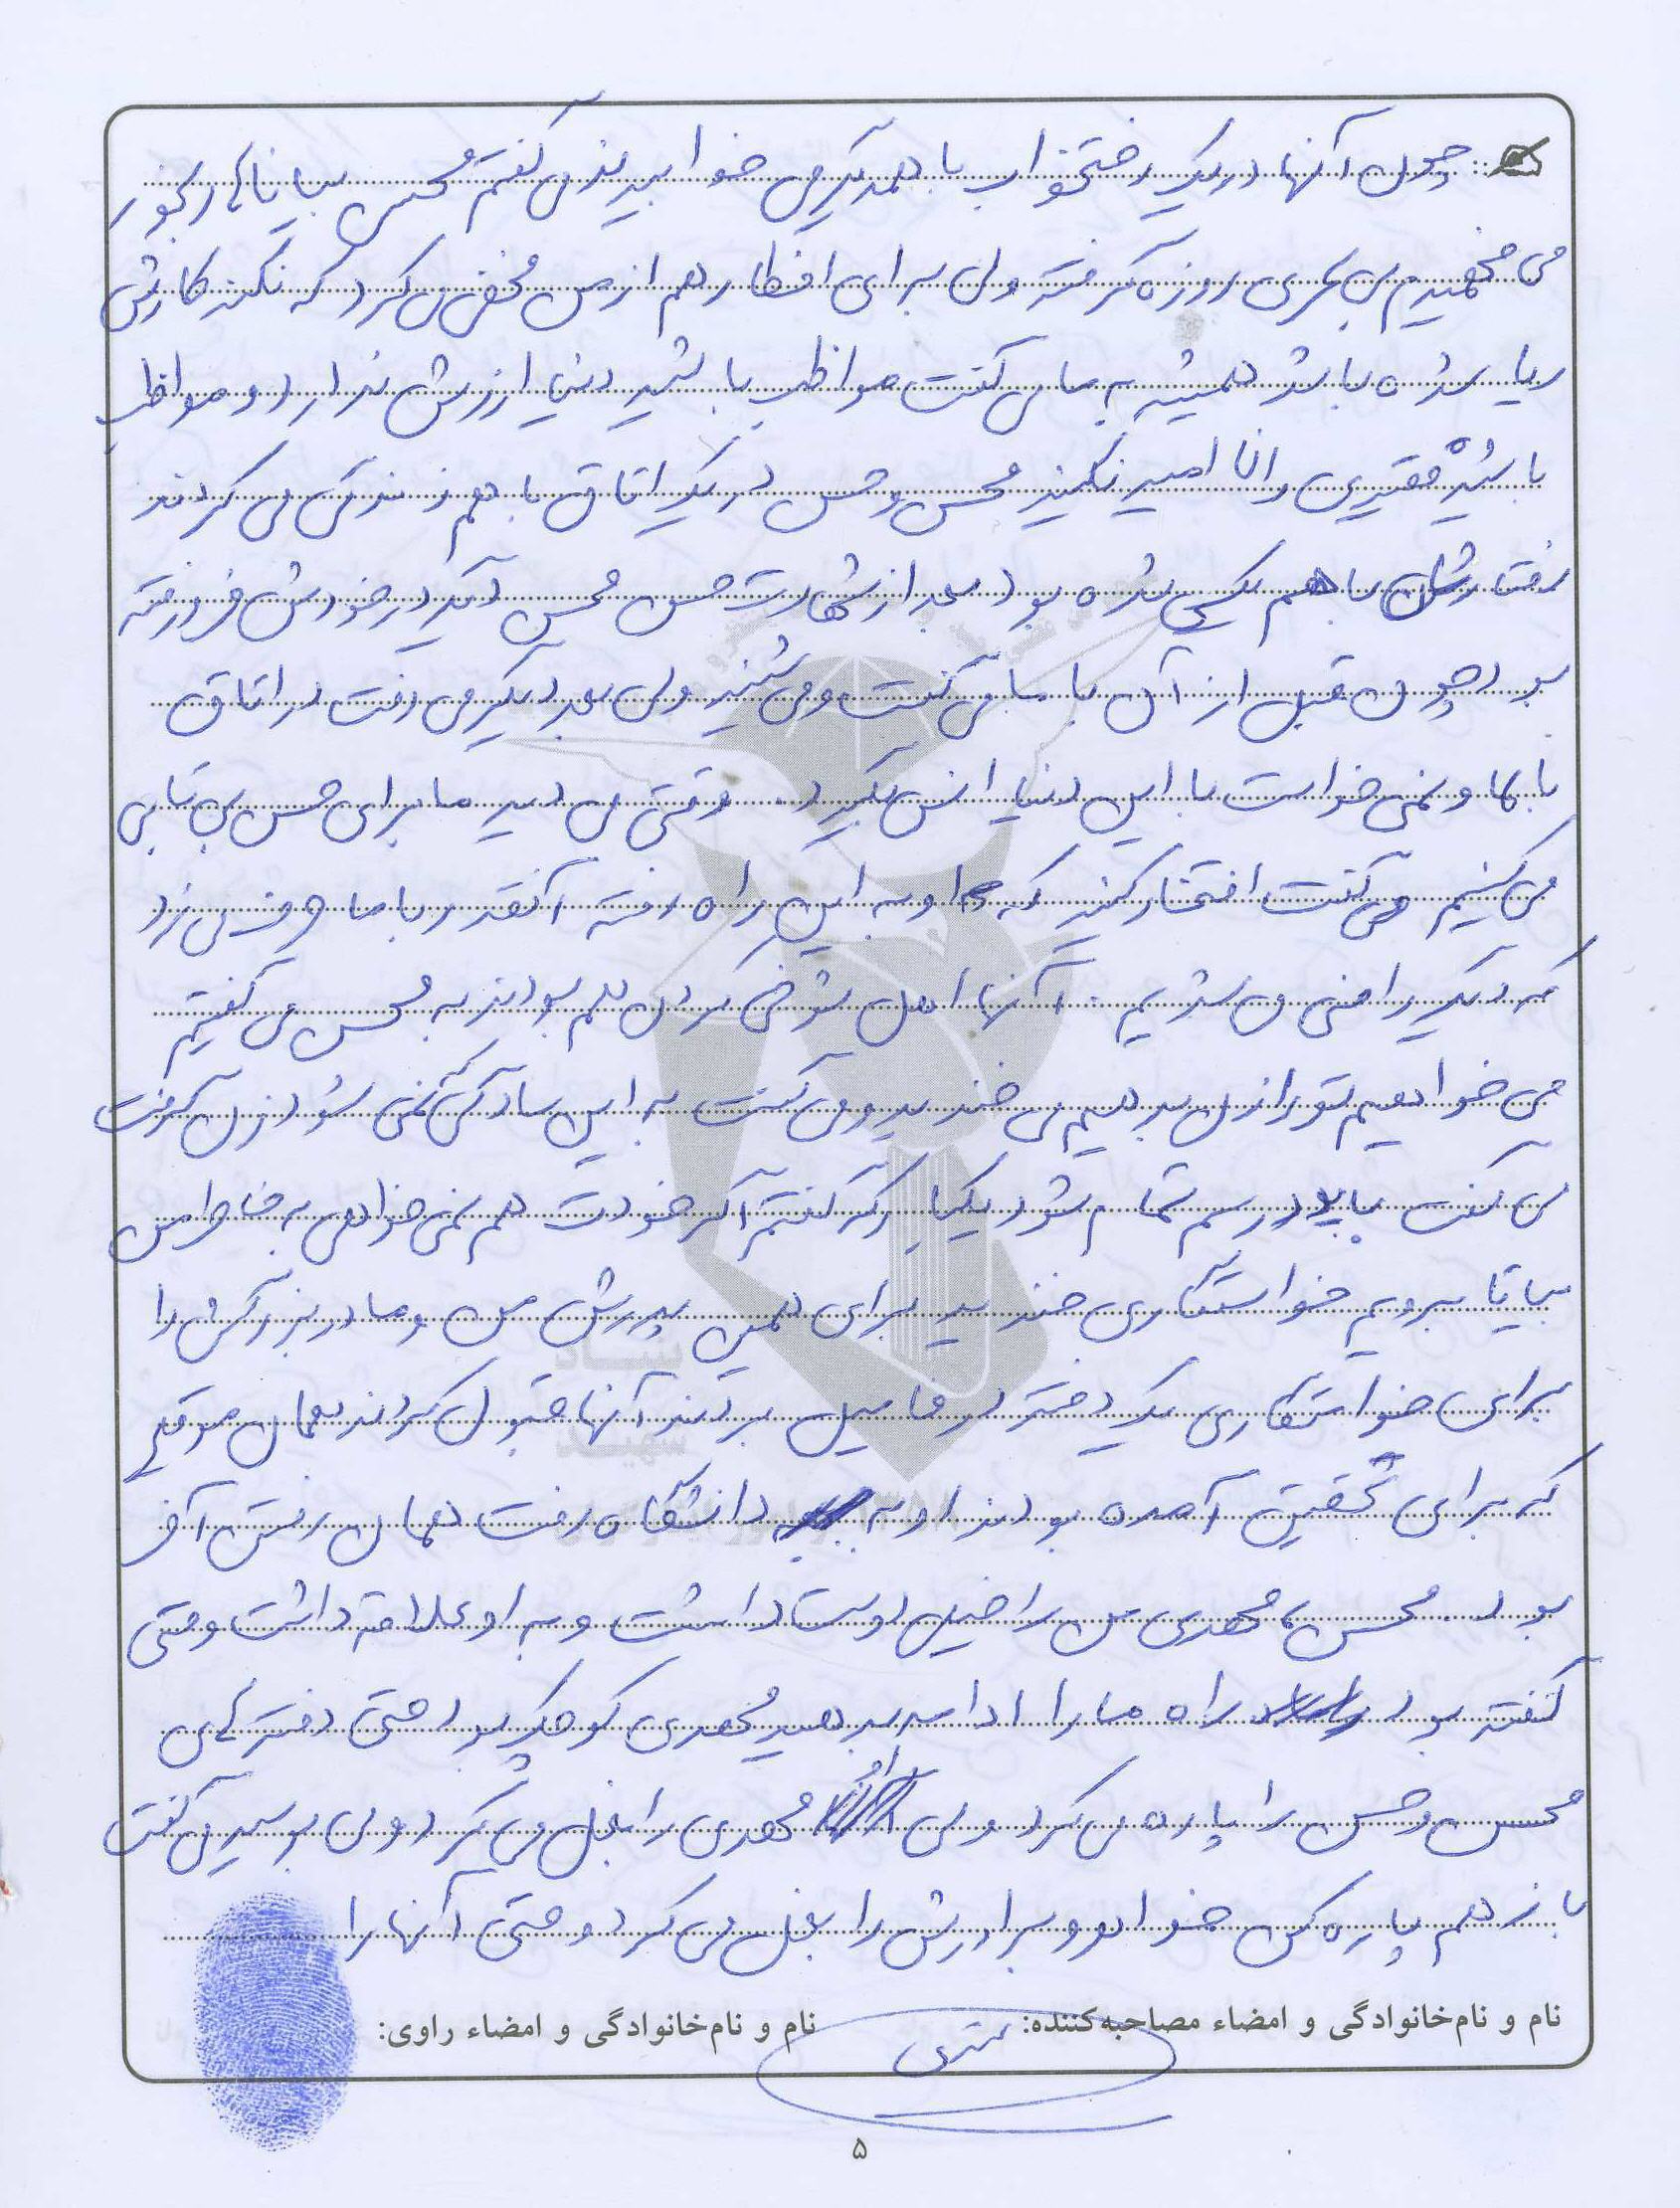 چون آنها در یک رختخواب با همدیگر می خوابیدند می گفتم محسن بیا ناهار بخور
می فهمیدم بی سحری روزه گرفته ولی برای افطار هم از من مخفی می کرد که نکند کارش
ریا شده باشد همیشه به ما می گفت مواظب باشید دنیا ارزش ندارد و مواظب
باشید فقیری را نا امید نکنید محسن و حسن در یک اتاق با هم زندگی می کردند
رفتارشان با هم یکی شده بود بعد از شهادت حسن محسن دیگر در خودش فرو رفته
بود چون قبل از آن با ما می گفت و می شنید ولی بعد دیگر می رفت در اتاق
بالا و نمی خواست با این دنیا انس بگیرد. وقتی می دید ما برای حسن بی تابی
می کنیم می گفت افتخار کنید که او به این راه رفته آنقدر با ما حرف می زد
که دیگر راضی می شدیم. آنها اهل شوخی کردن هم بودند به محسن می گفتیم
می خواهیم تو را زن بدهیم می خندید و می گفت به این سادگی نمی شود زن گرفت
می گفت باید درسم تمام شود یکبار که گفتم اگر خودت هم نمی خواهی به خاطر من
بیا تا برویم خواستگاری خندید برای همین پدرش من و مادر بزرگش را
برای خواستگاری یک دختر در فامیل بردند آنها قبول کردند همان موقع
که برای تحقیق آمده بودند او به دانشگاه رفت همان رفتن آخر
بود. محسن، مهدی من را خیلی دوست داشت و به او علاقه داشت وقتی
گفته بود راه ما را ادامه بدهید مهدی کوچک بود حتی دفترهای
محسن و حسن را پاره می کرد ولی او مهدی را بغل می کرد و می بوسید می گفت
باز هم پاره کن خواهر و برادرش را بغل می کرد و حتی آنها را
نام و نام‌خانوادگی و امضاء مصاحبه‌کننده:
نام و نام‌خانوادگی و امضاء راوی:
۵